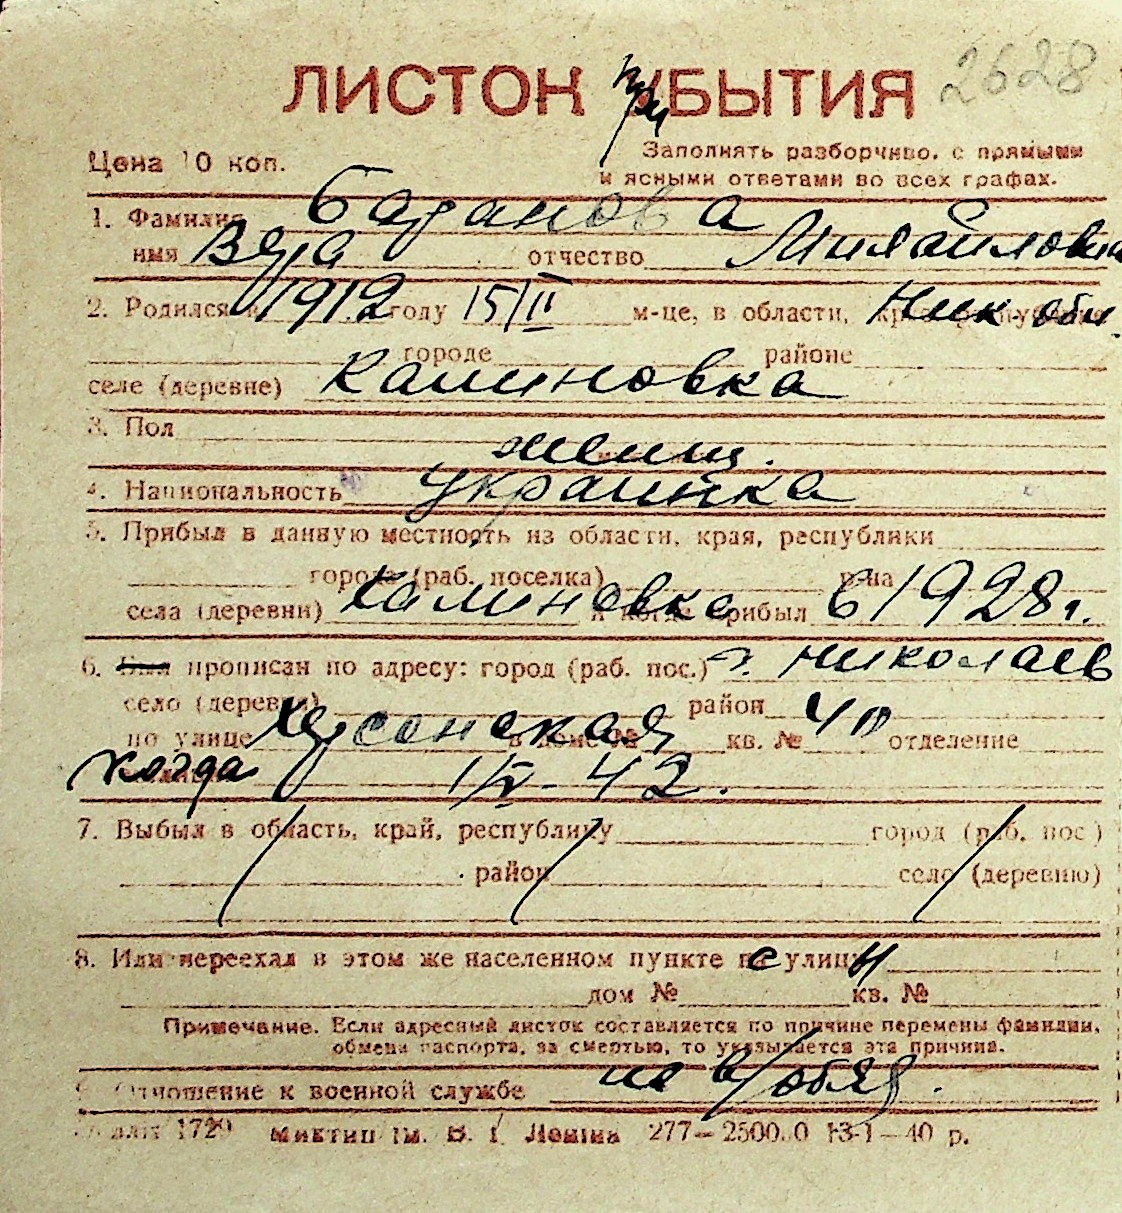 ЛИСТОК при УБЫТИЯ 2628
Цена 10 коп.
Заполнять разборчиво, с прямыми
и ясными ответами во всех графах.
1. Фамилия
имя Вера отчество Михайловна
2. Родился в 1912 году 15/II м-це, в области, Ник. обл.
городе районе
селе (деревне) Калиновка
3. Пол женщ.
4. Национальность украинка
5. Прибыл в данную местность из области, края, республики
города (раб. поселка) р-на
села (деревни) Калиновка и когда прибыл в 1928 г.
6. Был прописан по адресу: город (раб. пос.) г. Николаев
село (деревня) район
по улице Херсонская в доме № 40 кв. № отделение
когда 1/V-42.
7. Выбыл в область, край, республику город (раб. пос.)
район село (деревню)
8. Или переехал в этом же населенном пункте с улицы
дом № кв. №
Примечание. Если адресный листок составляется по причине перемены фамилии,
обмена паспорта, за смертью, то указывается эта причина.
9. Отношение к военной службе не в/обяз.
1729 ім. В. І. Леніна 277—2500.0 13-1—40 р.